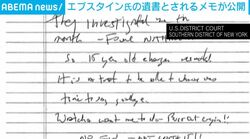 ABEMA NEWS
エプスタイン氏の遺書とされるメモが公開
U.S.DISTRICT COURT
SOUTHERN DISTRICT OF NEW YORK
They investigated me
month — Found NOTHING!!!
So 15 year old charges resulted
It is a treat to be able to choose
time to say goodbye.
Watcha want me to do — Burst
NO FUN — NOT WORTH IT!!